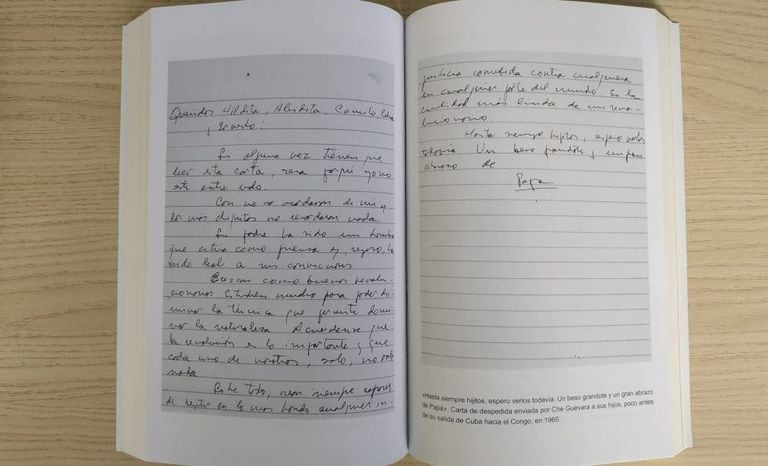 Queridos Hildita, Aleidita, Camilo, Celia
y Ernesto:
Si alguna vez tienen que
leer esta carta, sera porque yo no
esté entre uds.
Casi no se acordaran de mi y
los más chiquitos no recordaran nada.
Su padre ha sido un hombre
que actua como piensa y, seguro, ha
sido leal a sus convicciones
Crezcan como buenos revolu-
cionarios. Estudien mucho para poder do-
minar la técnica que permite domi-
nar la naturaleza. Acuerdense que
la revolución es lo importante y que
cada uno de nosotros, solo, no vale
nada.
Sobre todo, sean siempre capaces
de sentir en lo mas hondo cualquier in-
justicia cometida contra cualquiera
en cualquier parte del mundo. Es la
cualidad más linda de un revo-
lucionario.
Hasta siempre hijitos, espero verlos
todavía. Un beso grandote y un gran
abrazo de
Papa
«Hasta siempre hijitos, espero verlos todavía. Un beso grandote y un gran abrazo
de Papá». Carta de despedida enviada por Che Guevara a sus hijos, poco antes
de su salida de Cuba hacia el Congo, en 1965.